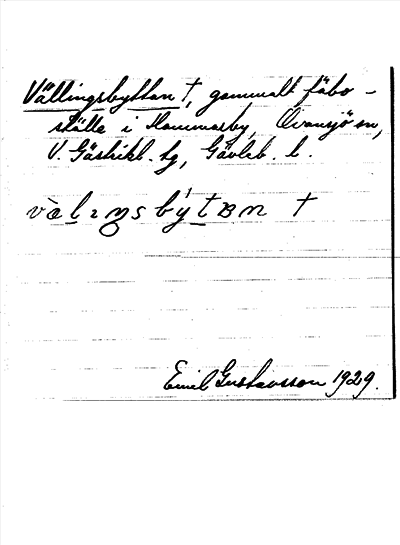 Vällingsbyttan †, gammalt fäbo-
ställe i Hammarby, Ovansjö sn,
V. Gästrikl. tg, Gävleb. l.
†
Emil Gustavsson 1929.